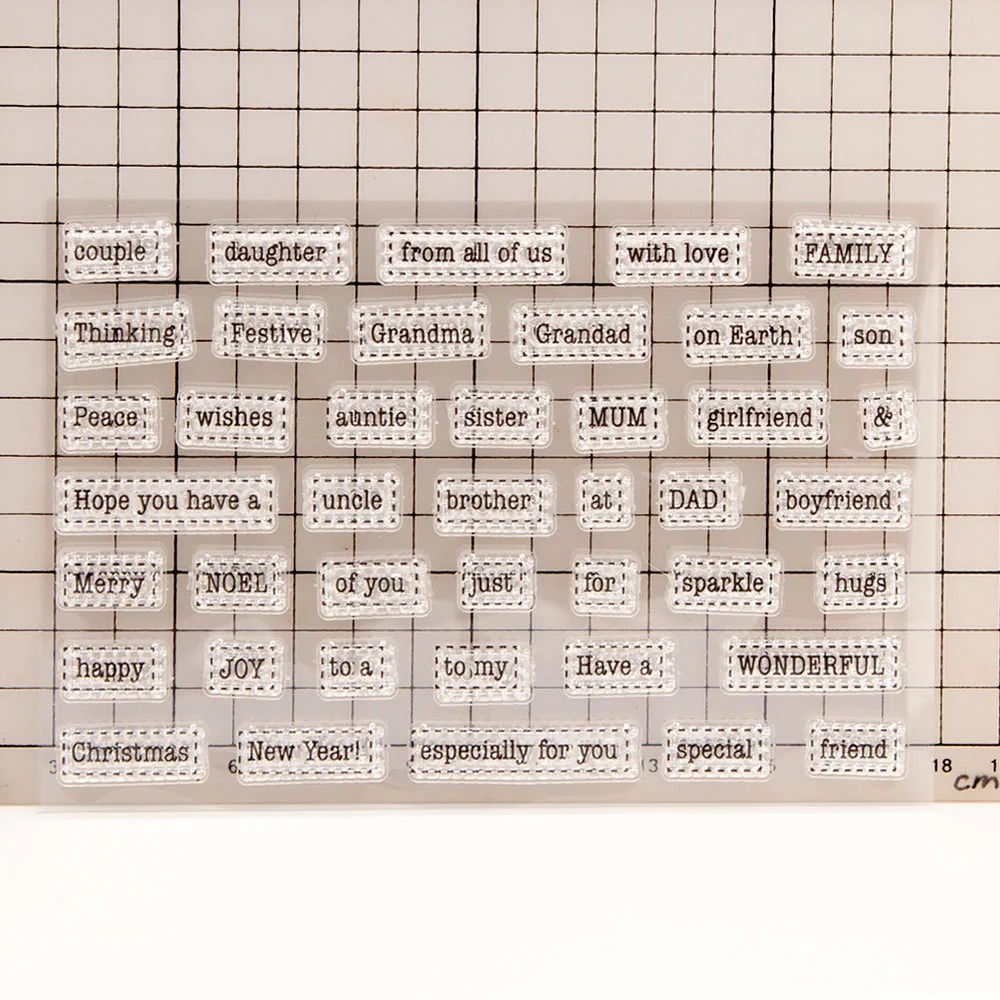 couple daughter from all of us with love FAMILY
Thinking Festive Grandma Grandad on Earth son
Peace wishes auntie sister MUM girlfriend &
Hope you have a uncle brother at DAD boyfriend
Merry NOEL of you just for sparkle hugs
happy JOY to a to my Have a WONDERFUL
Christmas New Year! especially for you special friend
3 6 13 18
cm